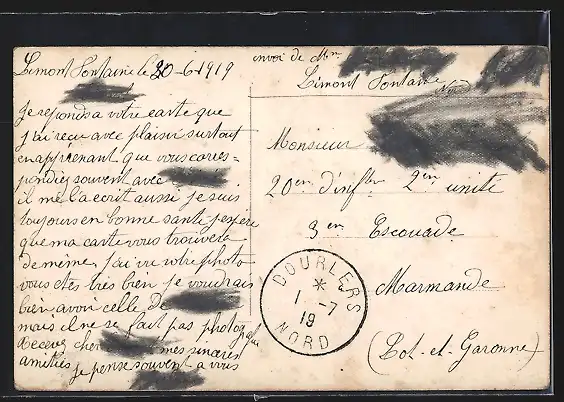 Limont Fontaine le 30-6-1919
Je reponds a votre carte que
j'ai reçu avec plaisir surtout
en apprenant que vous corres-
pondiez souvent avec
il me l'a ecrit aussi je suis
toujours en bonne santé j'espère
que ma carte vous trouvera
de même, j'ai vu votre photo
vous etes très bien je voudrais
bien avoir celle de
mais il ne se fait pas photographier
Recevez cher mes sincères
amitiés je pense souvent a vous
envoi de Mr
Limont Fontaine
Nord
Monsieur
20em d'inftie 2em unité
3em Escouade
Marmande
(Lot-et-Garonne)
DOURLERS
*
1 -7
19
NORD